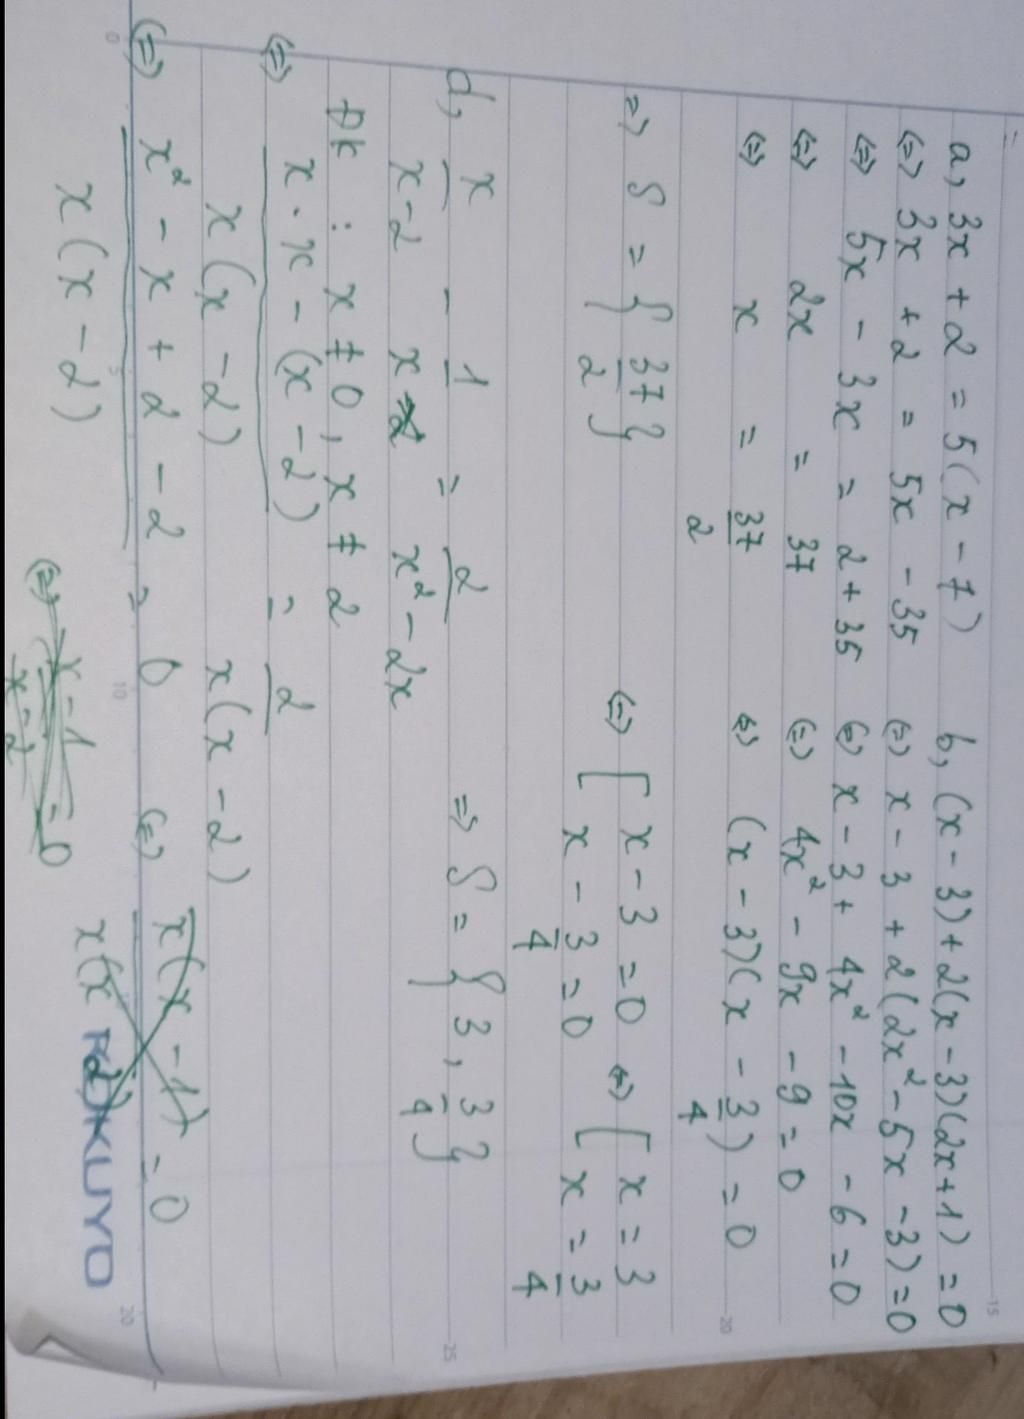 a, 3x + 2 = 5(x - 7)
(=) 3x + 2 = 5x - 35
(=) 5x - 3x = 2 + 35
(=) 2x = 37
(=) x = 37/2
=> S = { 37/2 }
b, (x - 3) + 2(x - 3)(2x + 1) = 0
(=) x - 3 + 2(2x² - 5x - 3) = 0
(=) x - 3 + 4x² - 10x - 6 = 0
(=) 4x² - 9x - 9 = 0
(=) (x - 3)(x - 3/4) = 0
(=) [ x - 3 = 0 (=) [ x = 3
x - 3/4 = 0 x = 3/4
=> S = { 3, 3/4 }
d, x/x-2 - 1/x = 2/x² - 2x
ĐK : x ≠ 0, x ≠ 2
(=) x . x - (x - 2)/x(x - 2) = 2/x(x - 2)
(=) x² - x + 2 - 2/x(x - 2) = 0 (=) x(x - 1)/x(x - 2) = 0
(=) x - 1/x - 2 = 0
KOKUYO
0
5
10
15
20
20
25